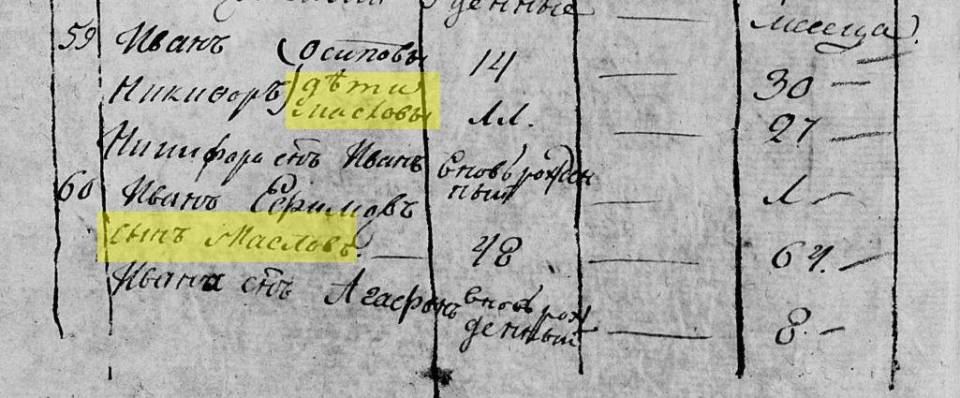 денные
месяца.
59 Иванъ Осиповы 14 — 30 —
Никифоръ дѣти Масловы 11. — 27 —
Никифора снъ Иванъ вновь рожденный — 1 —
60 Иванъ Ефимовъ
сынъ Масловъ — 48 — 64. —
Ивана снъ Агафонъ вновь рожденный — 8 —